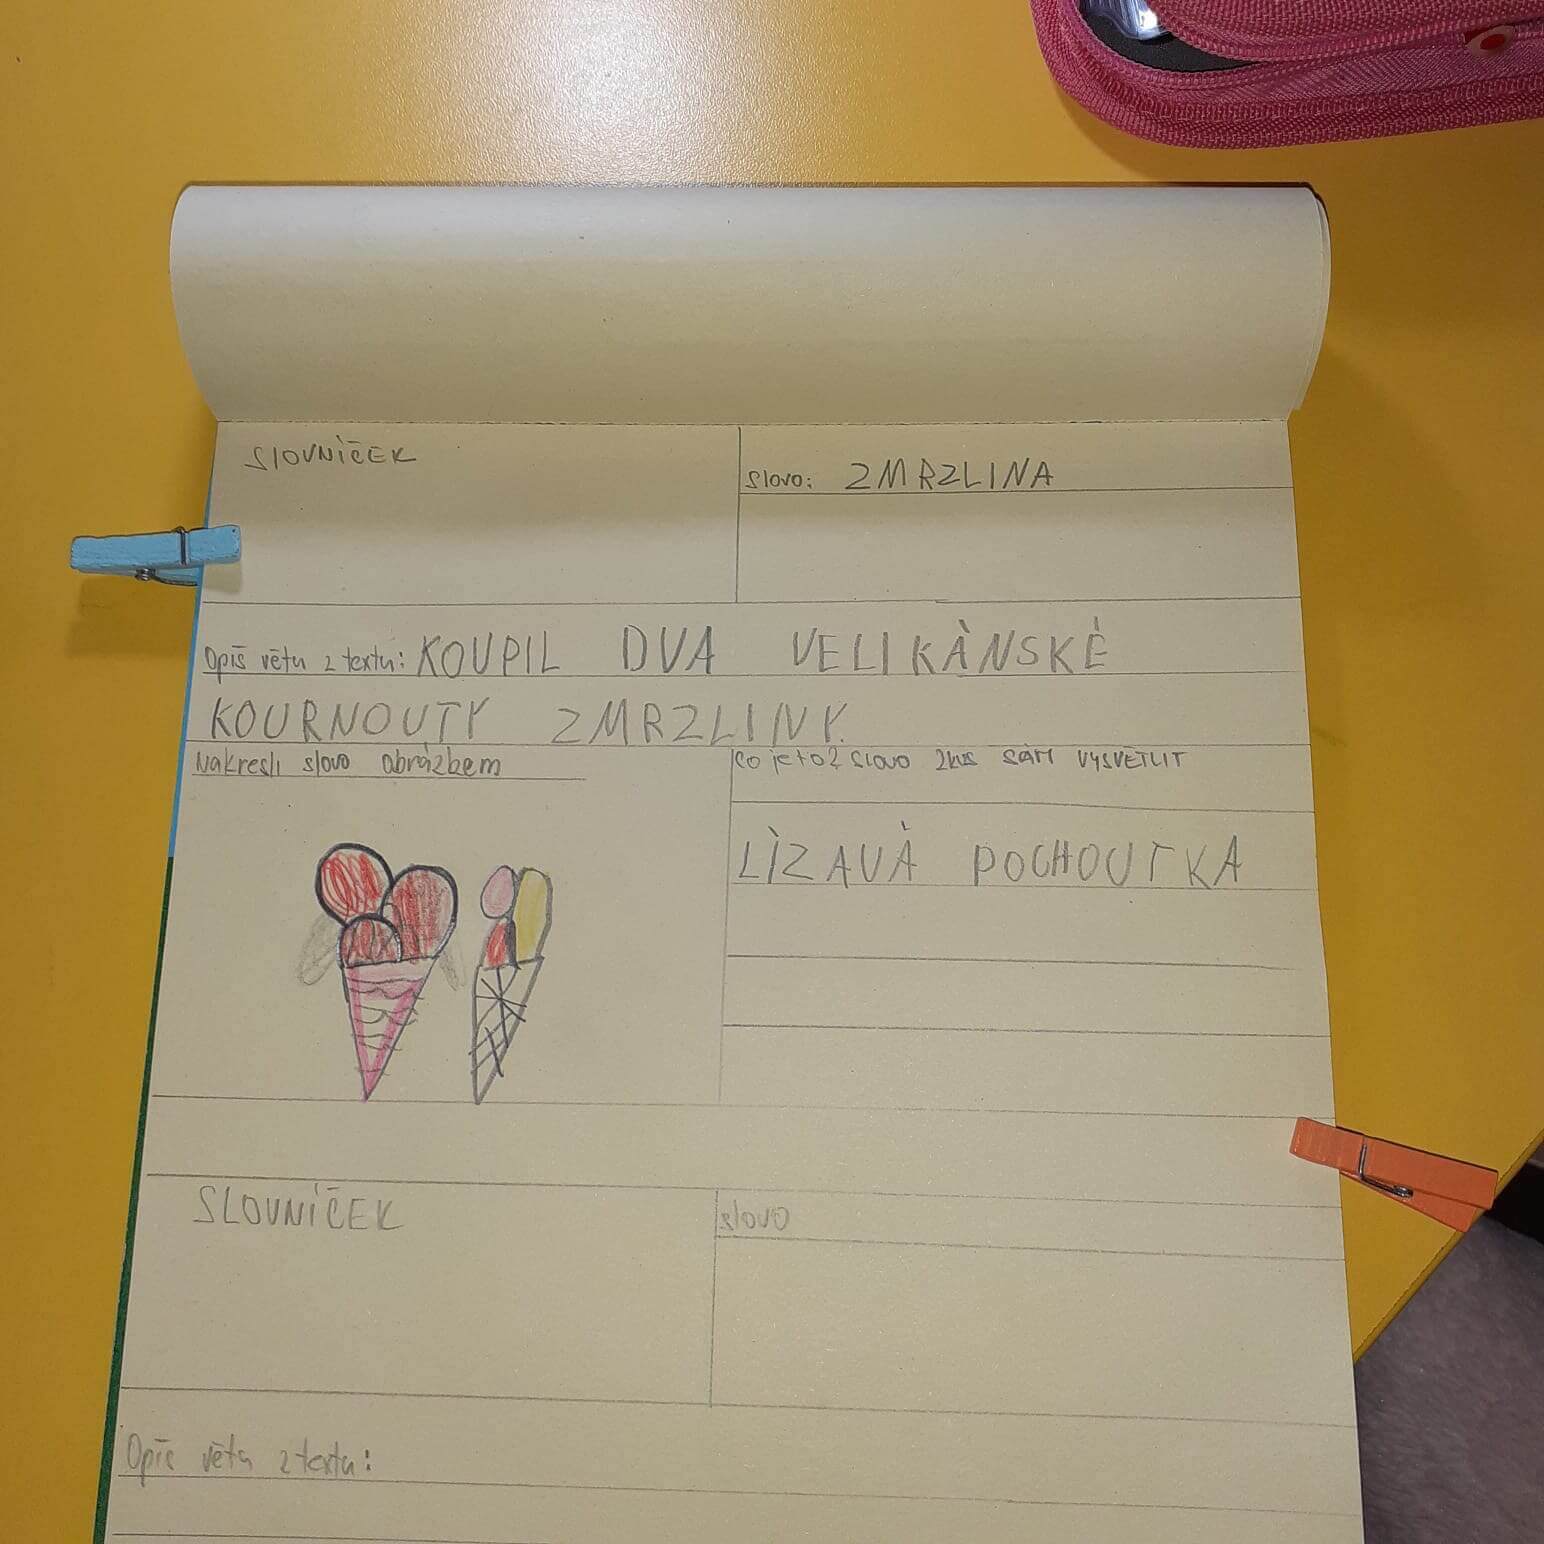 SLOVNÍČEK
slovo: ZMRZLINA
Opiš větu z textu: KOUPIL DVA VELIKÀNSKÈ
KOURNOUTY ZMRZLINY.
Nakresli slovo obrázbem
Co je to? slovo zkus SÁM VYSVĚTLIT
LÌZAVÀ POCHOUTKA
SLOVNÍČEK
slovo
Opiš větu z textu: